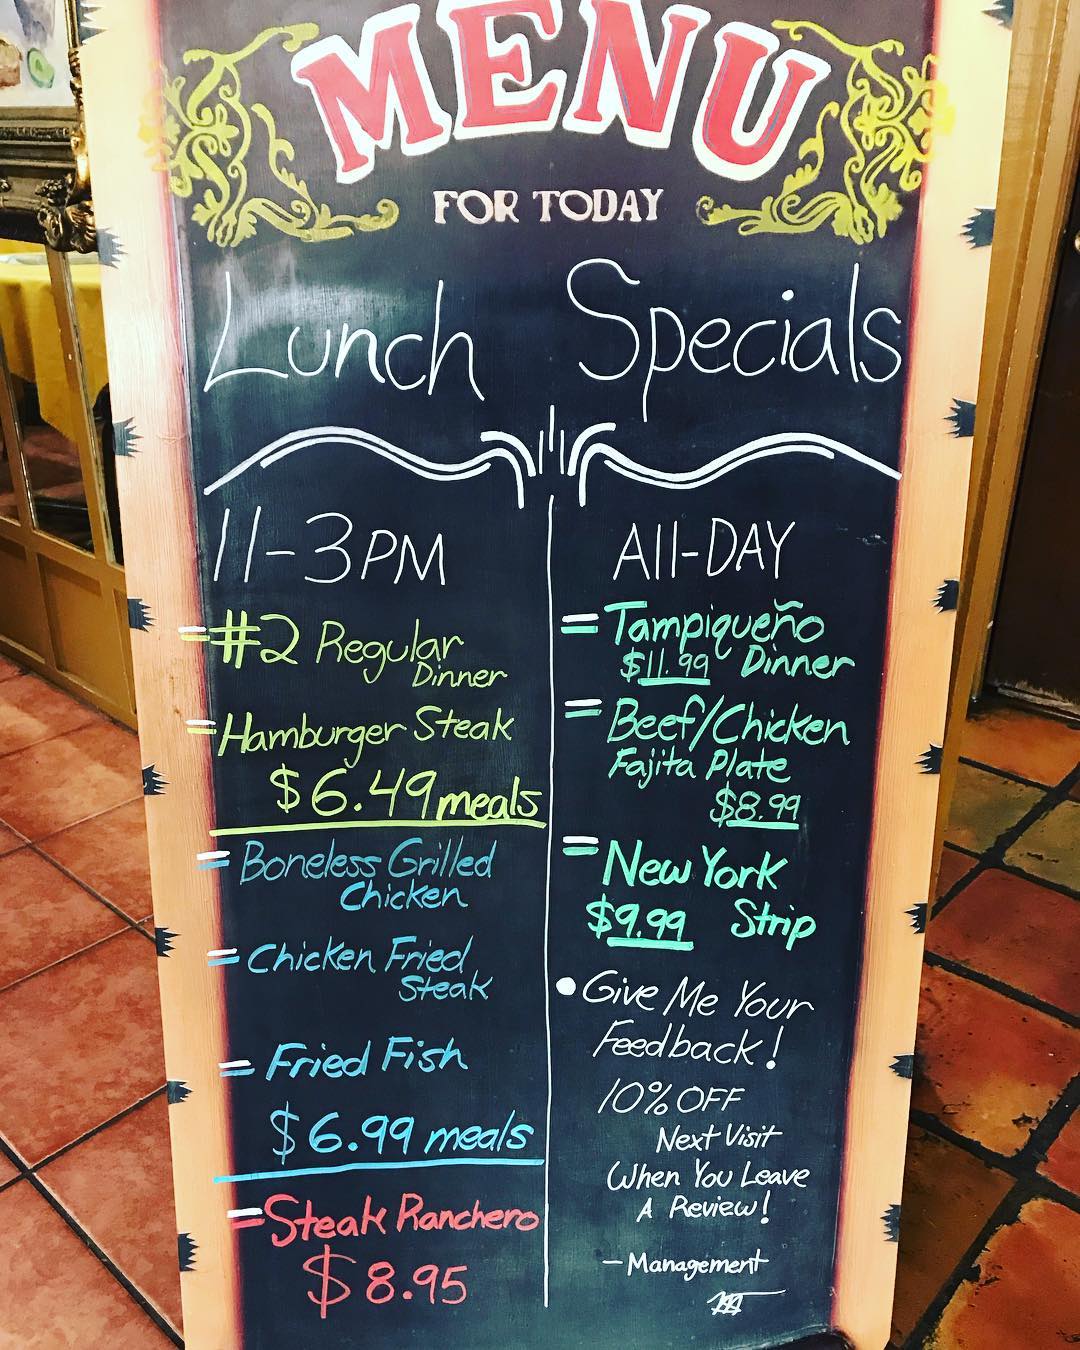 MENU
FOR TODAY
Lunch Specials
11-3PM
#2 Regular
Dinner
Hamburger Steak
$6.49 meals
Boneless Grilled
Chicken
Chicken Fried
Steak
Fried Fish
$6.99 meals
Steak Ranchero
$8.95
All-DAY
Tampiqueño
$11.99 Dinner
Beef/Chicken
Fajita Plate
$8.99
New York
$9.99 Strip
Give Me Your
Feedback!
10% OFF
Next Visit
When You Leave
A Review!
-Management